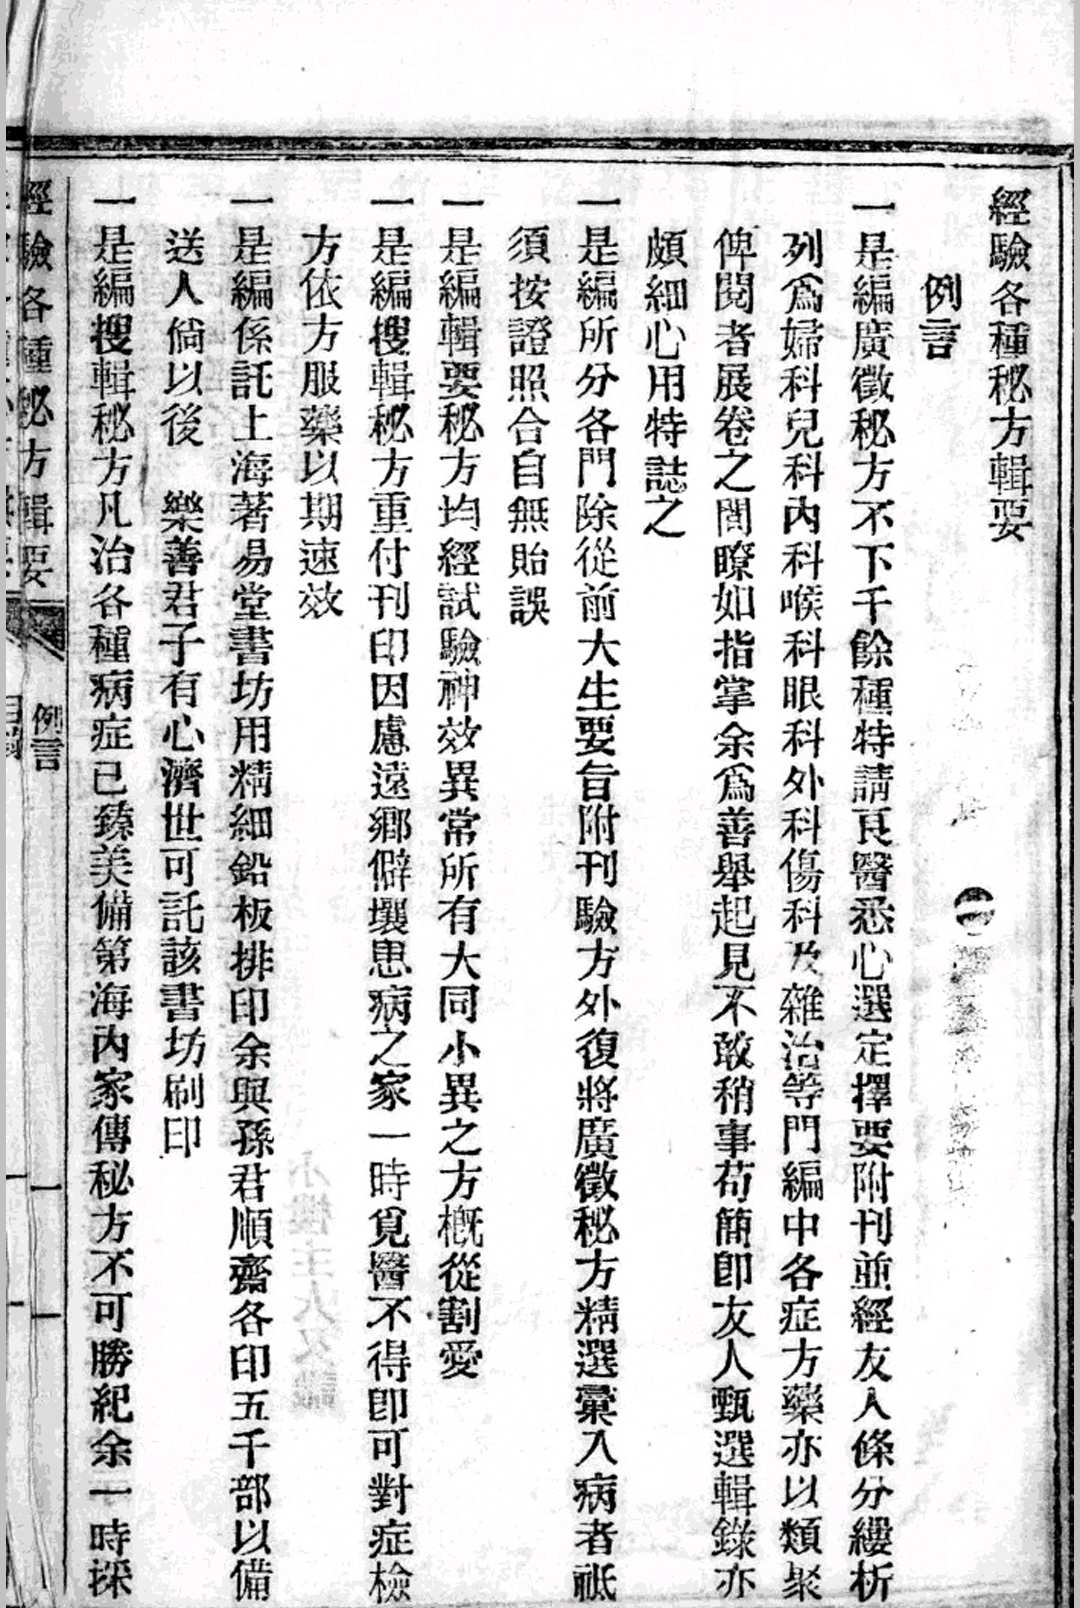 經驗各種秘方輯要
例言
一是編廣徵秘方不下千餘種特請良醫悉心選定擇要附刊並經友人條分縷析
列爲婦科兒科內科喉科眼科外科傷科及雜治等門編中各症方藥亦以類聚
俾閱者展卷之閒瞭如指掌余爲善舉起見不敢稍事苟簡卽友人甄選輯錄亦
頗細心用特誌之
一是編所分各門除從前大生要旨附刊驗方外復將廣徵秘方精選彙入病者祗
須按證照合自無貽誤
一是編輯要秘方均經試驗神效異常所有大同小異之方概從割愛
一是編搜輯秘方重付刊印因慮遠鄉僻壤患病之家一時覓醫不得卽可對症檢
方依方服藥以期速效
一是編係託上海著易堂書坊用精細鉛板排印余與孫君順齋各印五千部以備
送人倘以後 樂善君子有心濟世可託該書坊刷印
一是編搜輯秘方凡治各種病症已臻美備第海內家傳秘方不可勝紀余一時採
經驗各種秘方輯要 例言 一